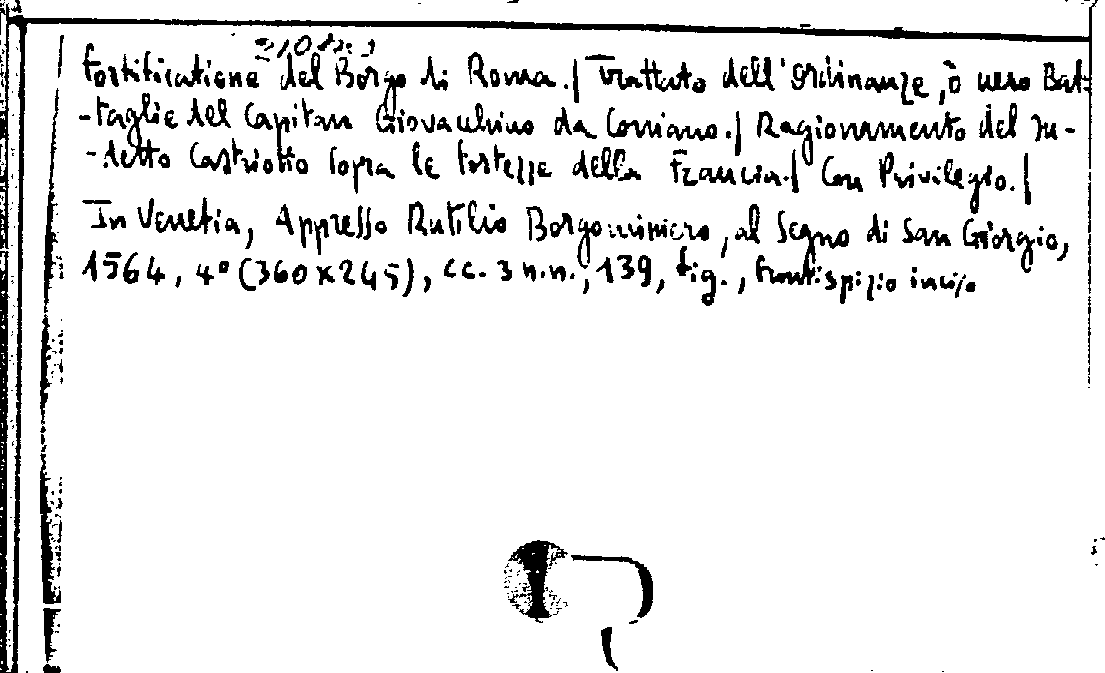 fortificatione del Borgo di Roma.| Trattato dell'Ordinanze, ò uero Bat-
-taglie del Capitan Giovacchino da Coniano.| Ragionamento del su-
-detto Castriotto sopra le fortezze della Francia.| Con Privilegio.|
In Venetia, Appresso Rutilio Borgominiero, al Segno di San Giorgio,
1564, 4° (360x245), cc. 3 n.n., 139, fig., frontispizio inciso